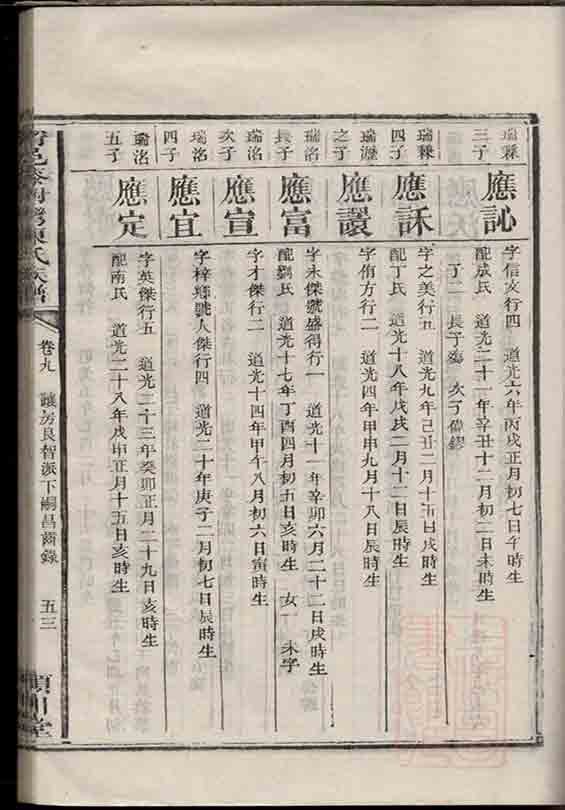 瑞霖
三子
應訫
字信文行四　道光六年丙戌正月初七日午時生
配成氏　道光二十一年辛丑十二月初二日未時生
子二　長子 次子偉鏐
瑞霖
四子
應訸
字之美行五　道光九年己丑二月十五日戌時生
配丁氏　道光十八年戊戌二月十二日辰時生
瑞瀍
之子
應譞
字侑方行二　道光四年甲申九月十八日辰時生
瑞洺
長子
應富
字永傑號盛得行一　道光十一年辛卯六月二十二日戌時生
配劉氏　道光十七年丁酉四月初五日亥時生　女一　未字
瑞洺
次子
應宣
字才傑行二　道光十四年甲午八月初六日寅時生
瑞洺
四子
應宜
字梓 號人傑行四　道光二十年庚子二月初七日辰時生
瑞洺
五子
應定
字英傑行五　道光二十三年癸卯正月二十九日亥時生
配南氏　道光二十八年戊申正月十五日亥時生
陳氏族譜
卷九　讓房良智派下嗣昌齒錄　五三
潁川堂